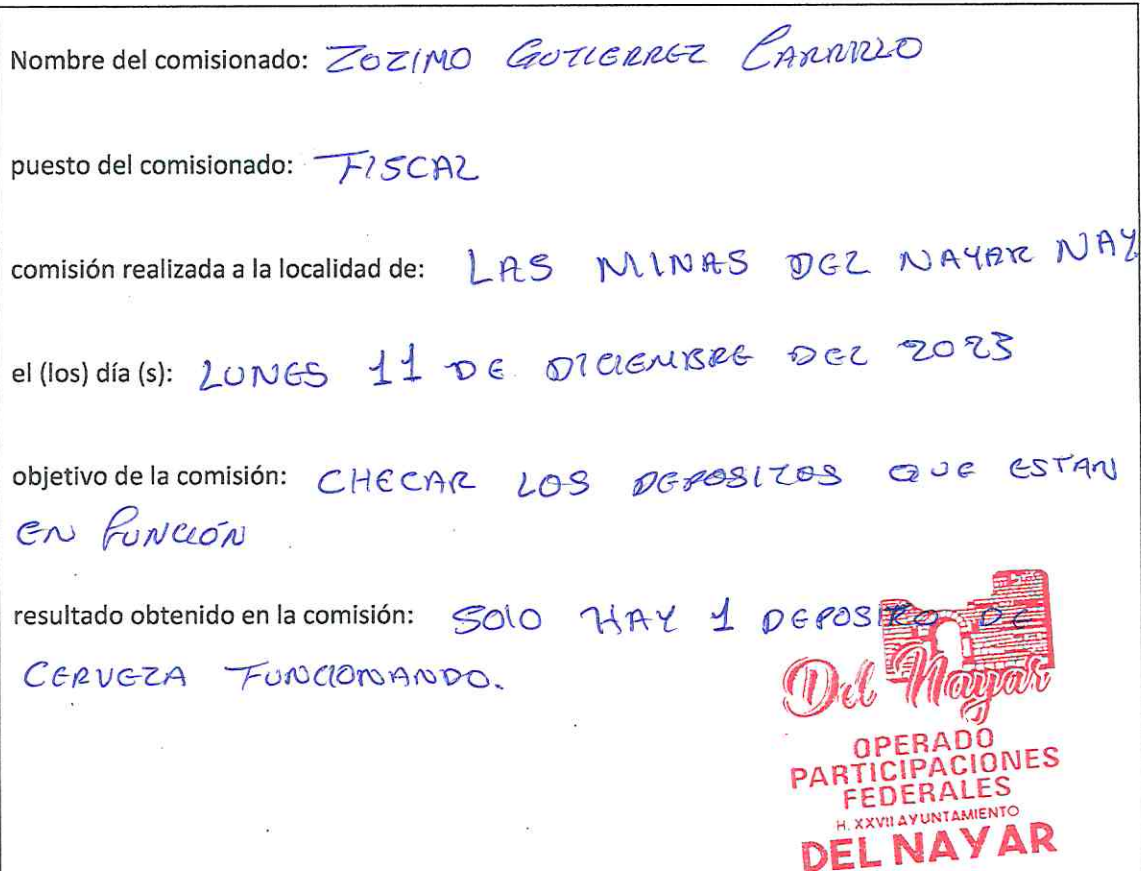 Nombre del comisionado: ZOZIMO GUTIERREZ CARRILLO
puesto del comisionado: FISCAL
comisión realizada a la localidad de: LAS MINAS DEL NAYAR NAY
el (los) día (s): LUNES 11 DE DICIEMBRE DEL 2023
objetivo de la comisión: CHECAR LOS DEPOSITOS QUE ESTAN
EN FUNCIÓN
resultado obtenido en la comisión: SOLO HAY 1 DEPOSITO DE
CERVEZA FUNCIONANDO.
Del Nayar
OPERADO
PARTICIPACIONES
FEDERALES
H. XXVII AYUNTAMIENTO
DEL NAYAR